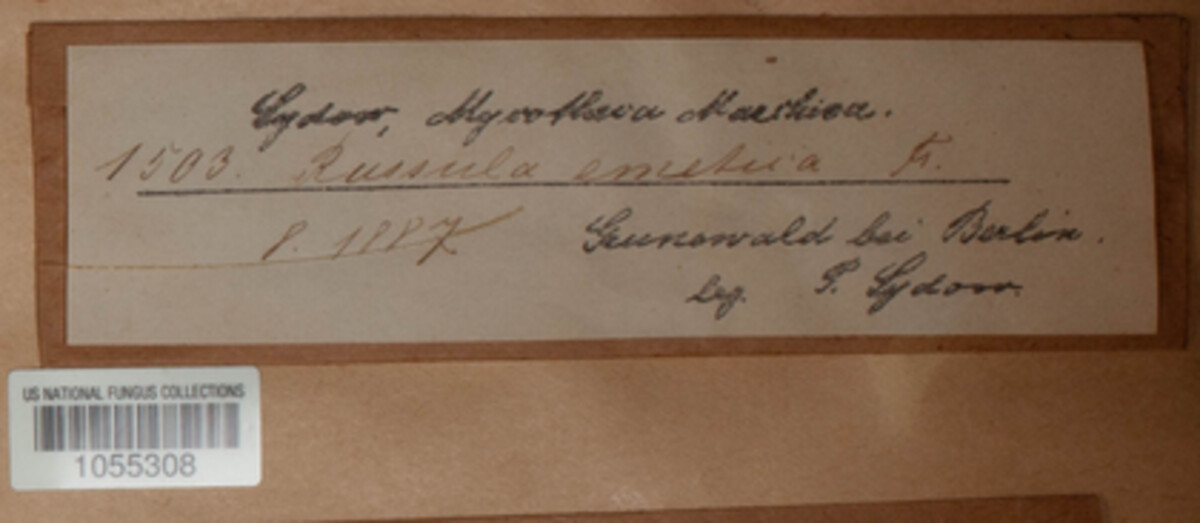 Sydow, Mycotheca Marchica.
1503. Russula emetica Fr.
8. 1887 Grunewald bei Berlin.
leg. P. Sydow.
US NATIONAL FUNGUS COLLECTIONS
1055308